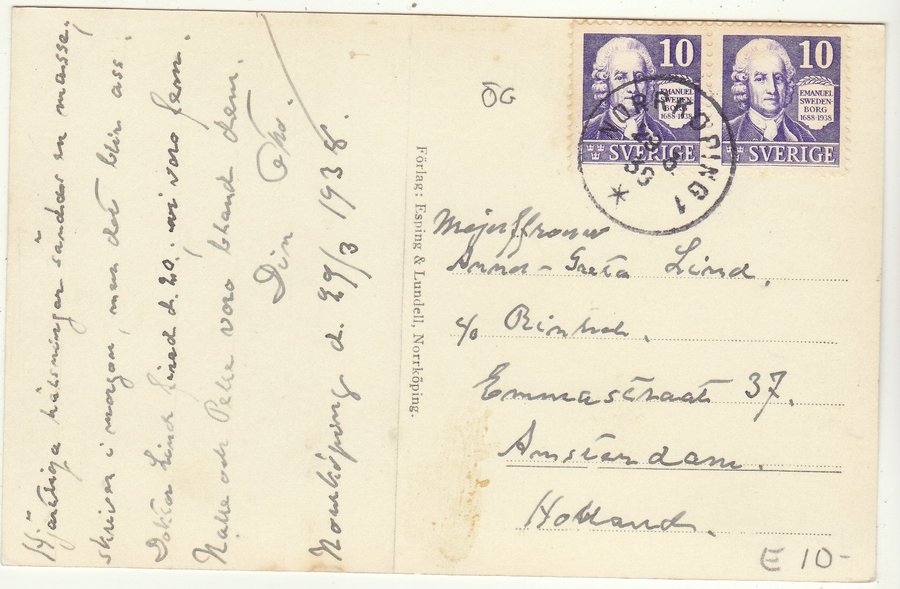 Hjärtliga hälsningar sändas en masse,
skriver i morgon, men det blir ass
Doktor Lind fired d. 20. vi voro fem.
Nalle och Pelle voro bland dem.
Din
Norrköping d. 29/3 1938.
Förlag: Esping & Lundell, Norrköping.
ÖG
10 10
EMANUEL SWEDENBORG 1688-1938
EMANUEL SWEDENBORG 1688-1938
SVERIGE SVERIGE
NORRKÖPING 1
Mejuffrouw
Anna-Greta Lind,
c/o
Emmastraat 37.
Amsterdam.
Holland.
E 10-